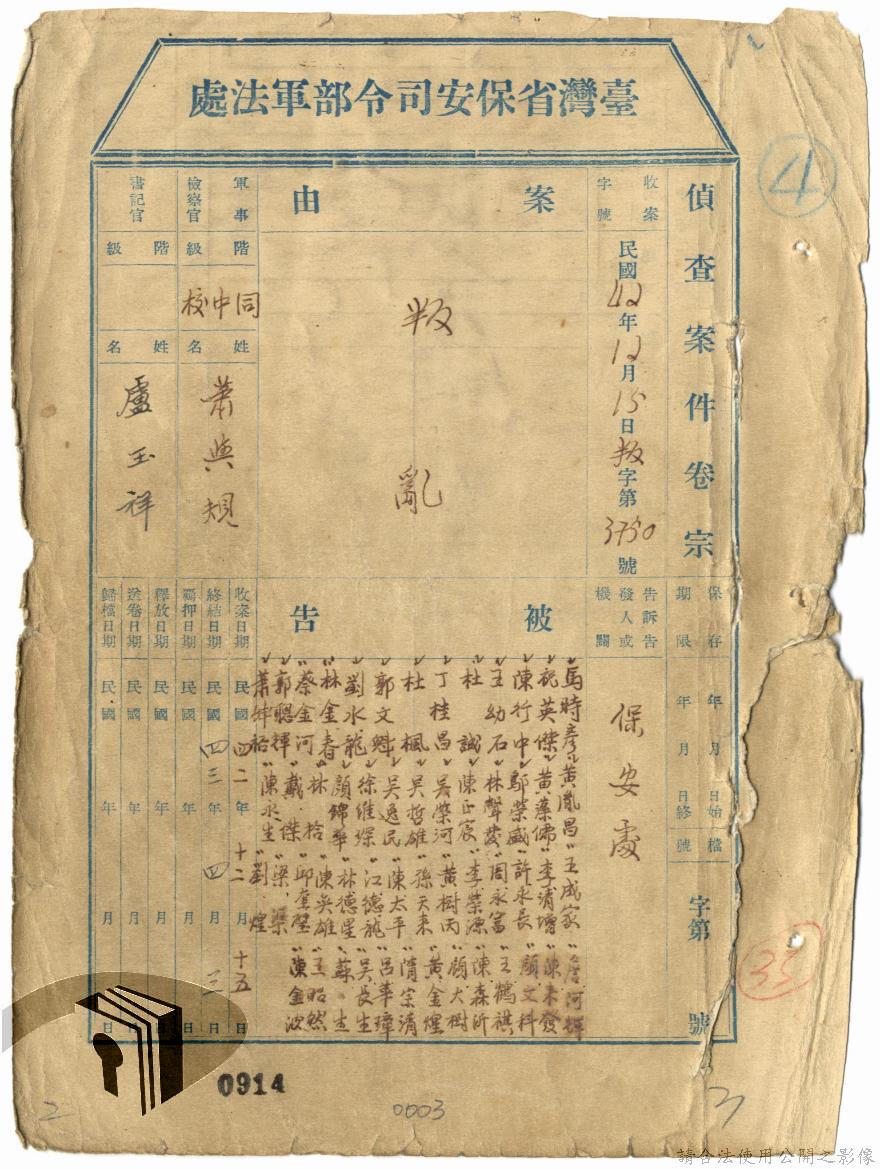 臺灣省保安司令部軍法處
④
偵查案件卷宗
保存期限
年月日始
年月日終
檔號
字第 號
收案字號
民國42年12月15日叛字第3750號
告訴告發人或機關
保安處
案由
叛亂
被告
馬時彥 黃鳳昌 王成家 詹河輝
祝英傑 黃藻儒 李清增 陳來發
陳行中 鄔榮盛 許永長 顏文科
王幼石 林聲發 周永富 王鶴祺
杜誠 陳正宸 李榮源 陳森沂
丁桂昌 吳榮河 黃樹丙 顧大樹
杜楓 吳哲雄 孫天來 黃金煋
郭文魁 吳逸民 陳太平 隋宗清
劉水龍 徐維琛 江德龍 呂華璋
林金春 顏錦華 林德星 吳長生
蔡金河 林恰 陳奐雄 蘇生
郭聰輝 戴傑 邱奎璧 王昭然
蕭 裕 陳永生 梁 陳金波
劉煌
軍事檢察官
階級
同中校
姓名
蕭與規
書記官
階級
姓名
盧玉祥
收案日期 民國四二年十二月十五日
終結日期 民國四三年四月三日
羈押日期 民國 年 月 日
釋放日期 民國 年 月 日
送卷日期 民國 年 月 日
歸檔日期 民國 年 月 日
33
0914
2
0003
請合法使用公開之影像